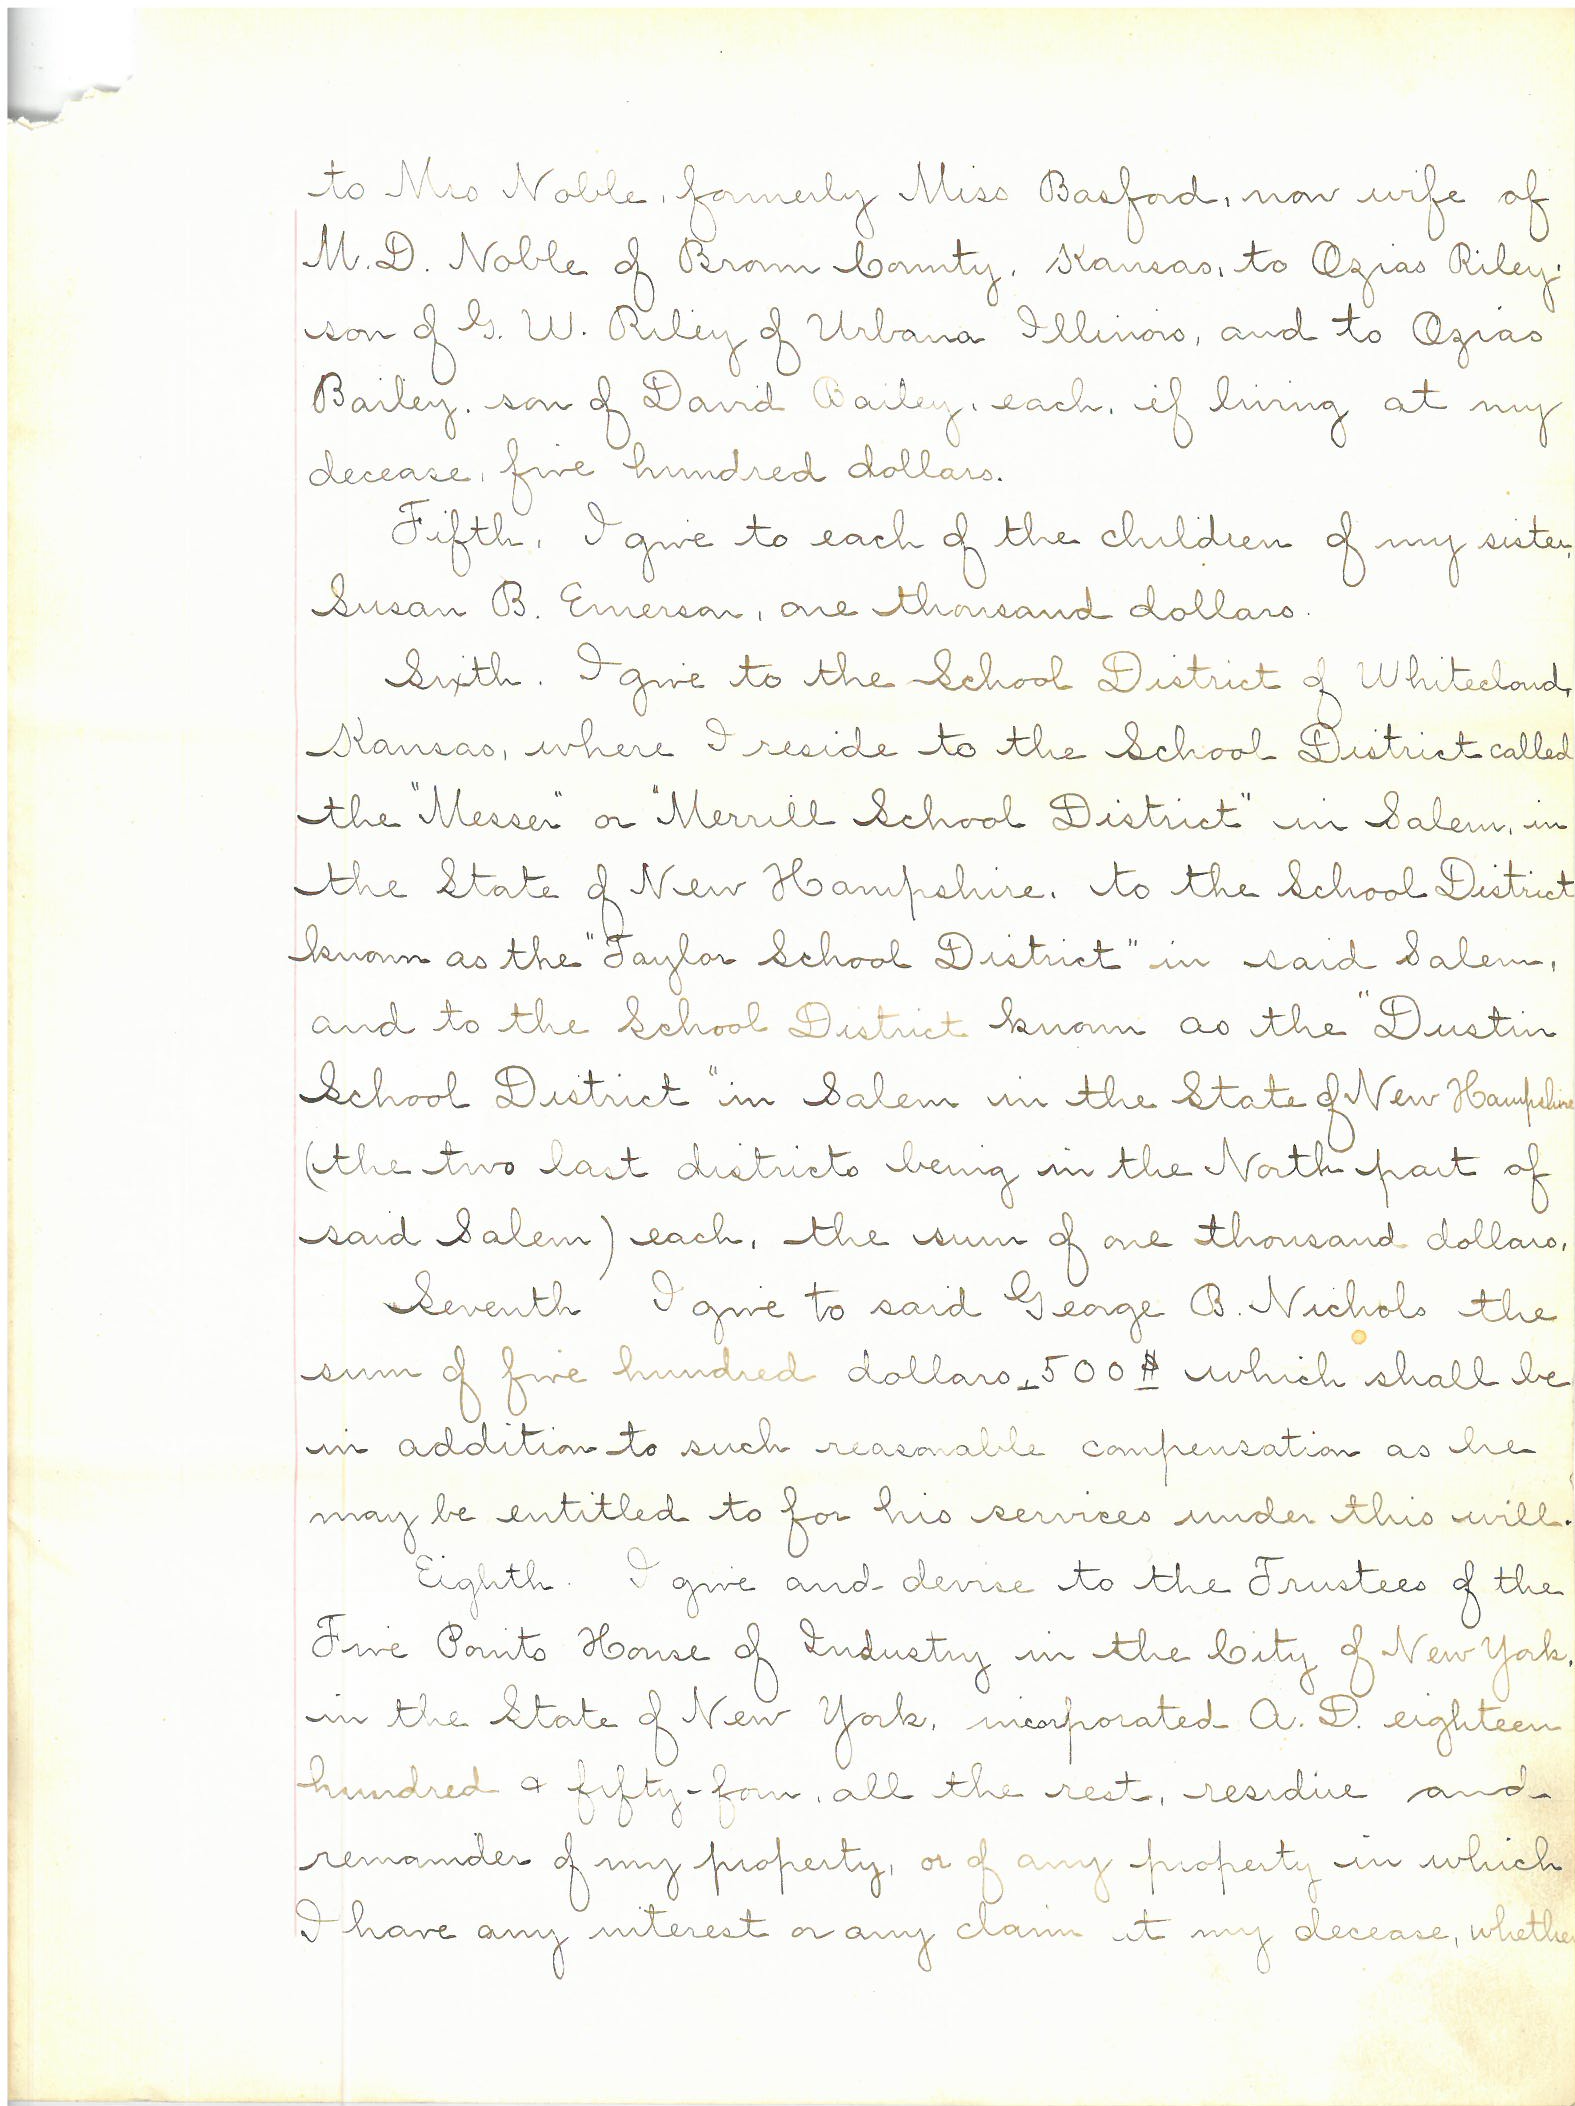 to Mrs Noble, formerly Miss Basford, now wife of
M. D. Noble of Brown County, Kansas, to Ozias Riley,
son of G. W. Riley of Urbana Illinois, and to Ozias
Bailey, son of David Bailey, each, if living at my
decease, five hundred dollars.
Fifth, I give to each of the children of my sister,
Susan B. Emerson, one thousand dollars.
Sixth. I give to the School District of Whitecloud,
Kansas, where I reside to the School District called
the "Messer" or "Merrill School District" in Salem, in
the State of New Hampshire, to the School District
known as the "Taylor School District" in said Salem,
and to the School District known as the "Dustin
School District" in Salem in the State of New Hampshire
(the two last districts being in the North part of
said Salem) each, the sum of one thousand dollars.
Seventh I give to said George B. Nichols the
sum of five hundred dollars 500$ which shall be
in addition to such reasonable compensation as he
may be entitled to for his services under this will.
Eighth. I give and devise to the Trustees of the
Five Points House of Industry in the City of New York,
in the State of New York, incorporated A. D. eighteen
hundred & fifty-four, all the rest, residue and
remainder of my property, or of any property in which
I have any interest or any claim at my decease, whether